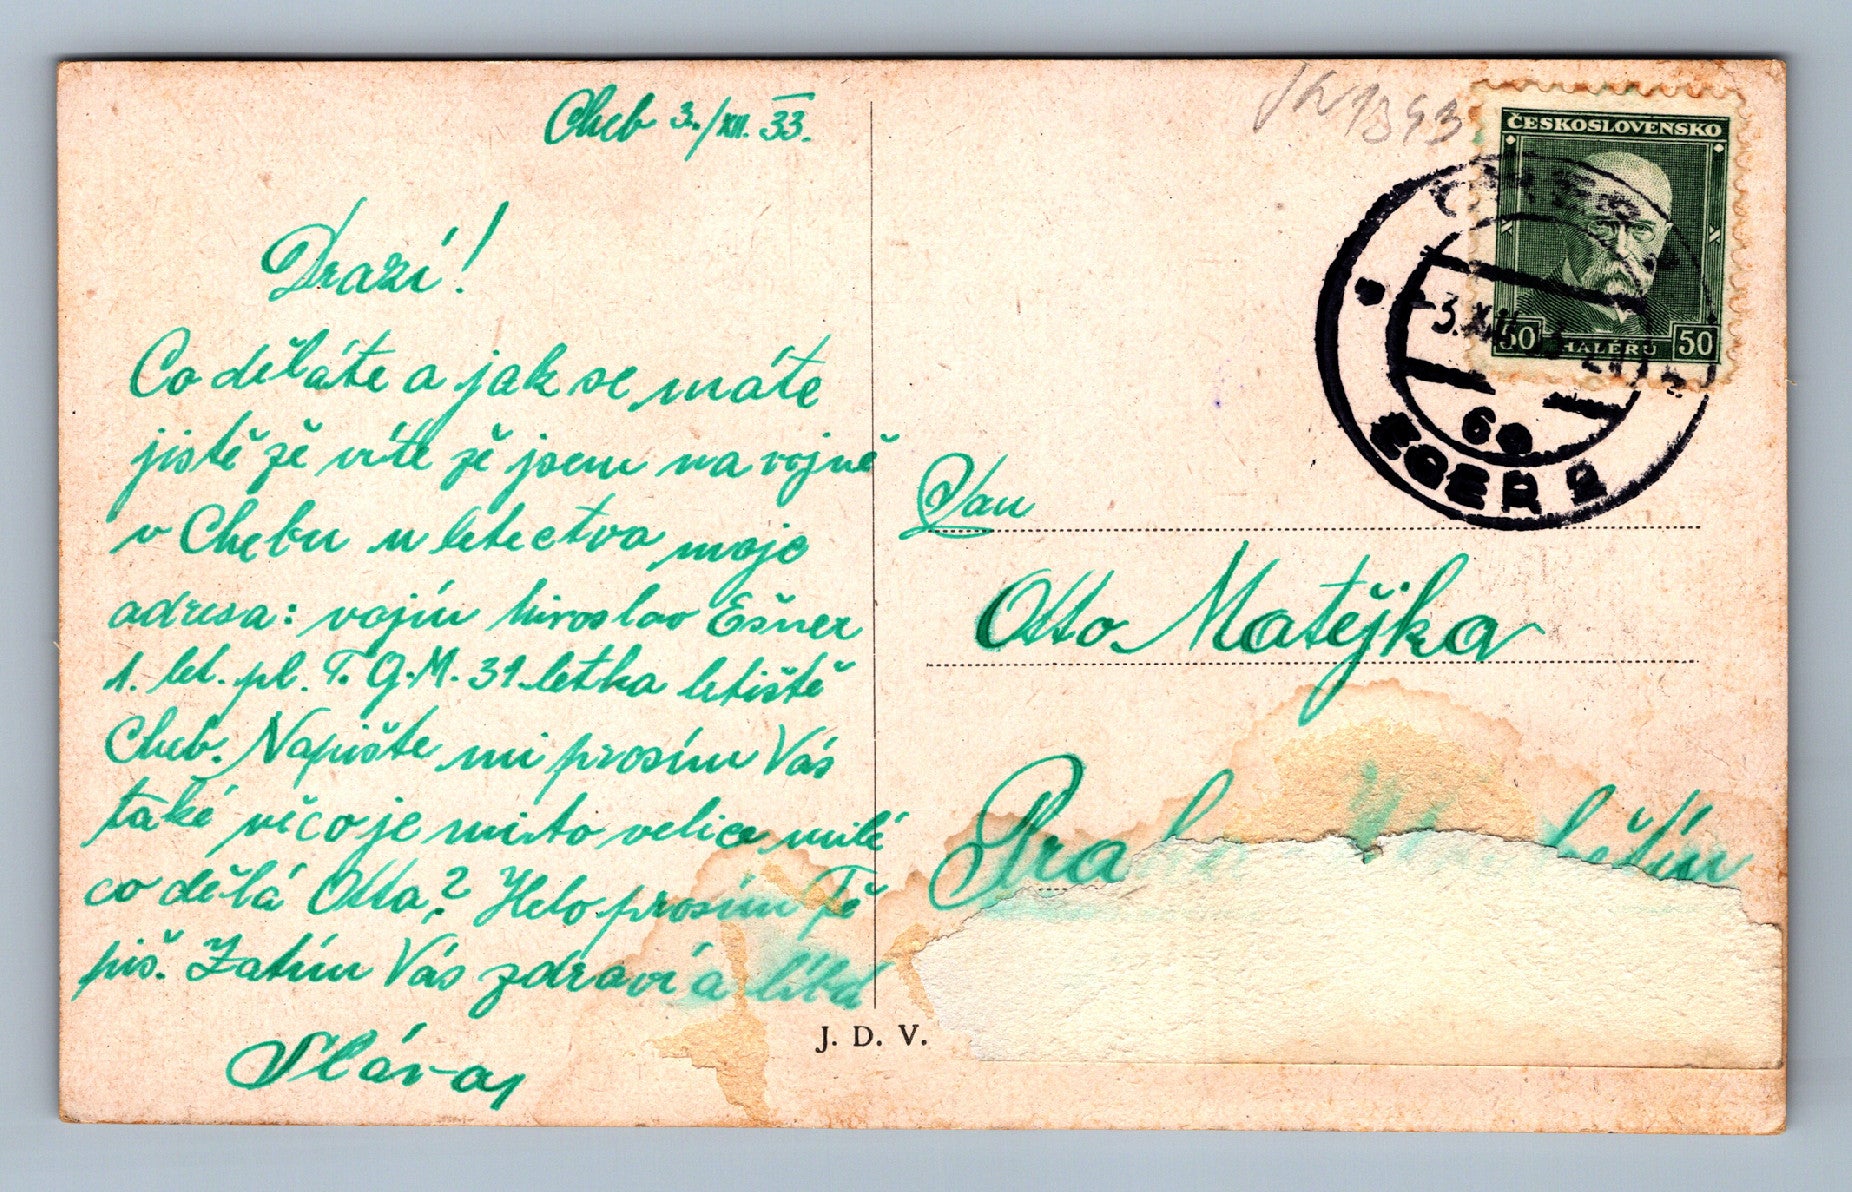 Cheb 3./XII. 33.
Drazí!
Co děláte a jak se máte
jistě že víte že jsem na vojně
v Chebu u letectva moje
adresa: vojín Miroslav Ešner
1. let. pl. T. G. M. 31 letka letiště
Cheb. Napište mi prosím Vás
také něco je mirto velice milé
co dělá Otta? Helo prosím Tě
piš. Zatím Vás zdraví a líbá
Sláva
J. D. V.
ČESKOSLOVENSKO
50 HALÉŘŮ 50
CHEB 2
3.XII.33
6a
EGER 2
Pan
Otto Matějka
Praha